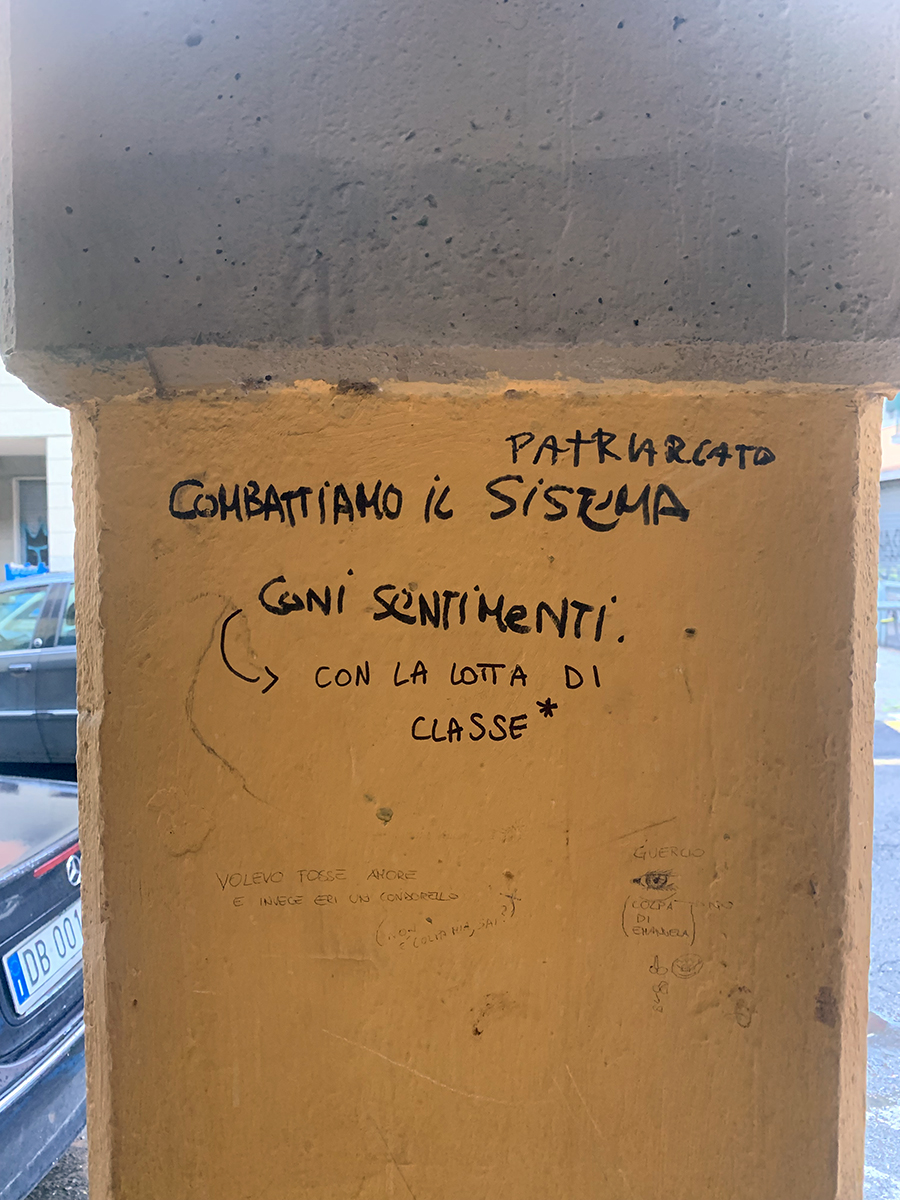 PATRIARCATO
COMBATTIAMO IL SISTEMA
CON I SENTIMENTI.
CON LA LOTTA DI
CLASSE*
VOLEVO FOSSE AMORE
E INVECE ERI UN CONDORELLO
(NON
È COLPA MIA, SAI?)
GUERCIO
(COLPA
DI
EMANUELA)
I DB 001